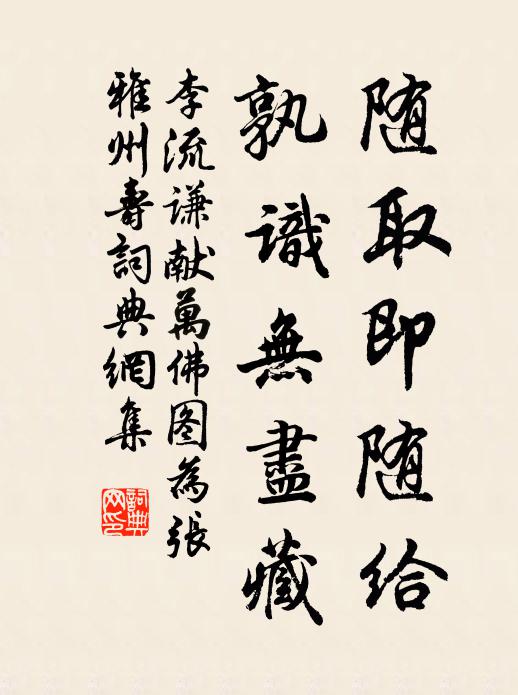 随取即随给
孰識無盡藏
李流谦献萬佛图為張
雅州壽詞典網集
詞典网印